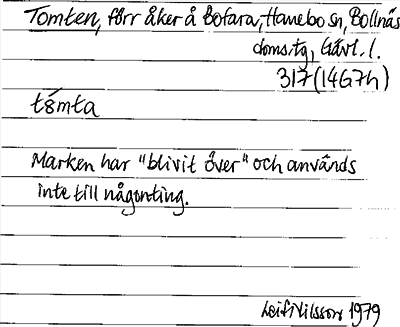 Tomten, förr åker å Bofara, Hanebo sn, Bollnäs
doms.tg, Gävl. l.
317(14G7h)
tómta
Marken har "blivit över" och används
inte till någonting.
Leif Nilsson 1979